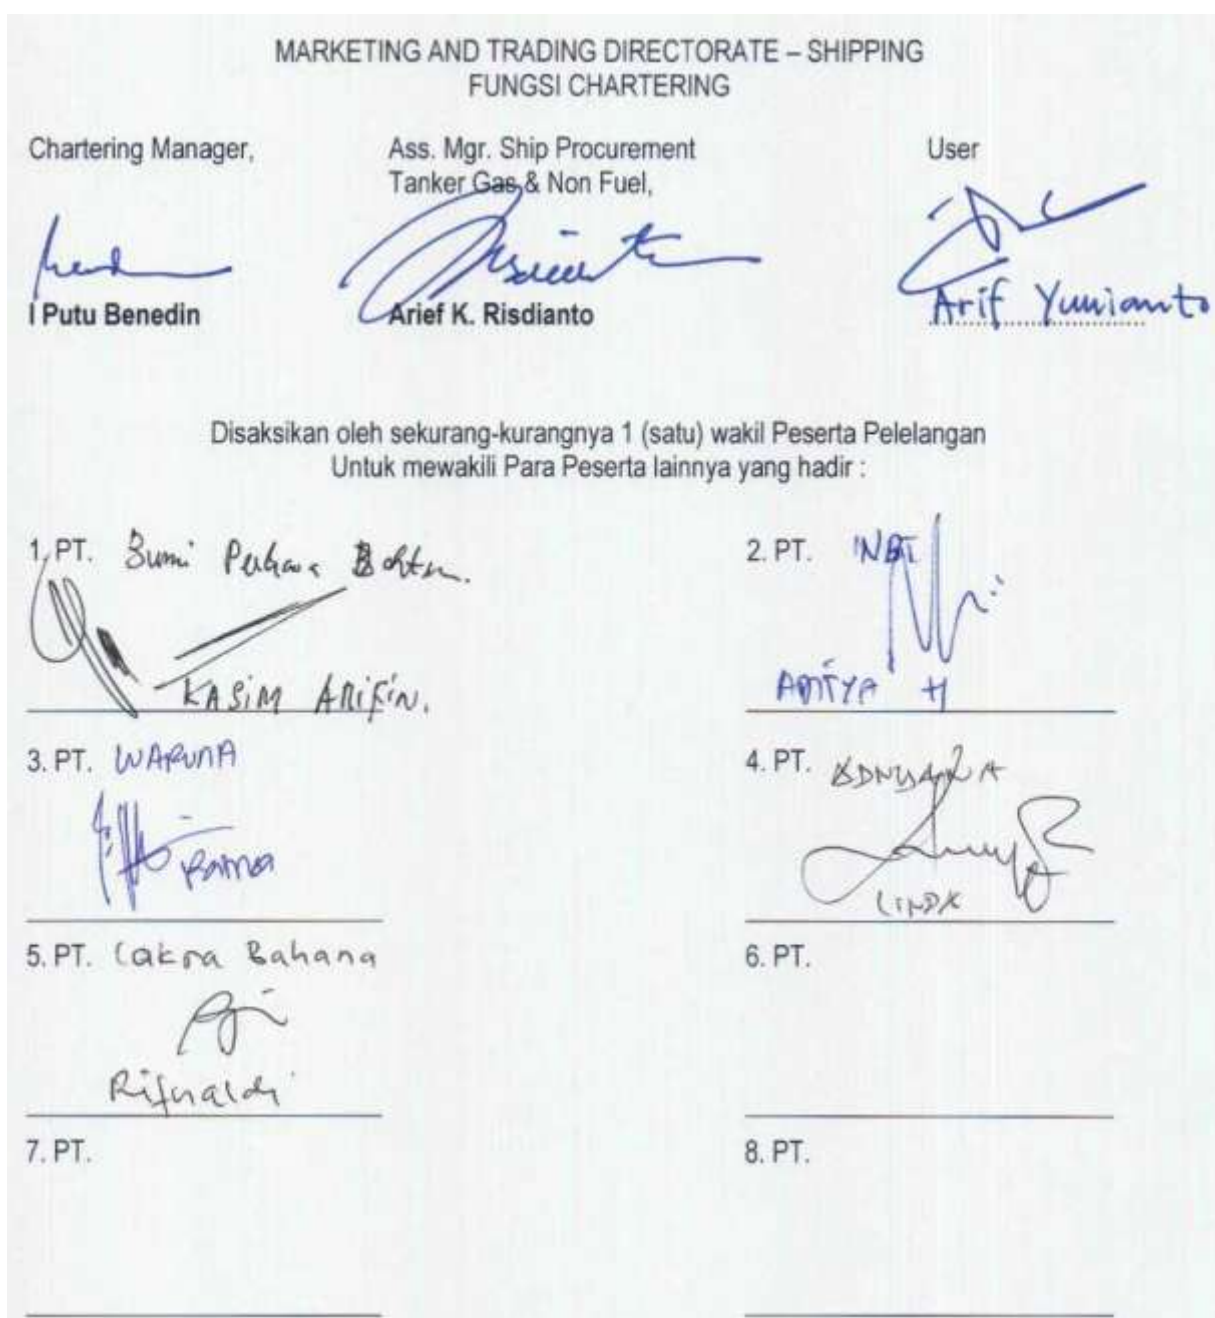 MARKETING AND TRADING DIRECTORATE – SHIPPING
FUNGSI CHARTERING
Chartering Manager,
Ass. Mgr. Ship Procurement
Tanker Gas & Non Fuel,
User
I Putu Benedin
Arief K. Risdianto
Arif Yunianto
Disaksikan oleh sekurang-kurangnya 1 (satu) wakil Peserta Pelelangan
Untuk mewakili Para Peserta lainnya yang hadir :
1. PT. Bumi
KASIM ARIFIN.
2. PT.
ADITYA H
3. PT. WARUNA
4. PT.
LINDA
5. PT. Cakra Bahana
Rifnaldi
6. PT.
7. PT.
8. PT.